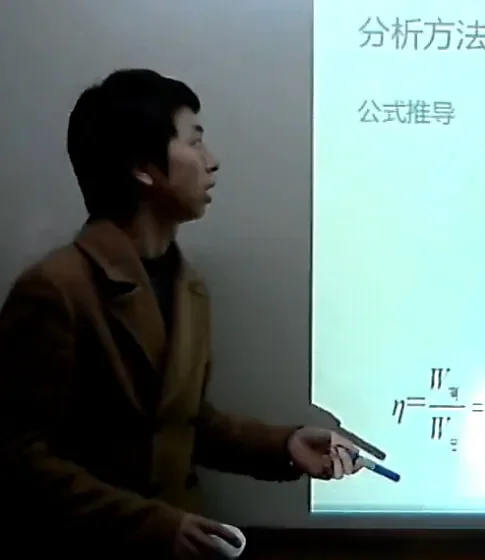 分析方法
公式推导
η=W/W=